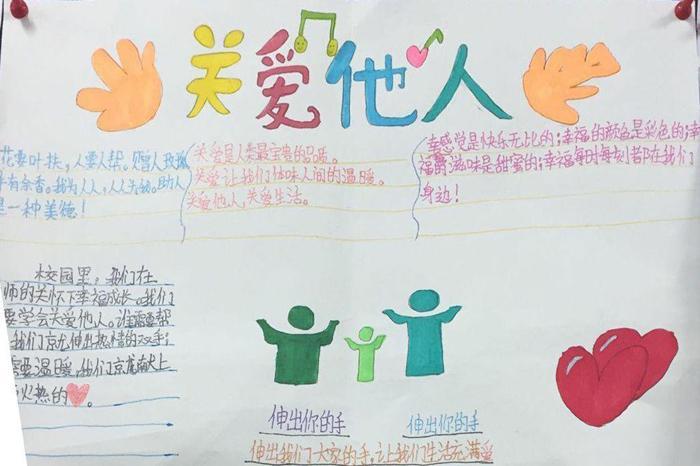 关爱他人
花要叶扶，人要人帮。赠人玫瑰
手有余香。我为人人，人人为我。助人
是一种美德！
关爱是人类最宝贵的品质。
关爱让我们体味人间的温暖。
关爱他人，关爱生活。
幸感觉是快乐无比的；幸福的颜色是彩色的；幸
福滋味是甜蜜的；幸福每时每刻都在我们
身边！
校园里，我们在
师的关怀下幸福成长。我们
要学会关爱他人。谁需要帮
我们就伸出热情的双手；
需要温暖，我们就献上
火热的
伸出你的手
伸出你的手
伸出我们大家的手，让我们生活充满爱